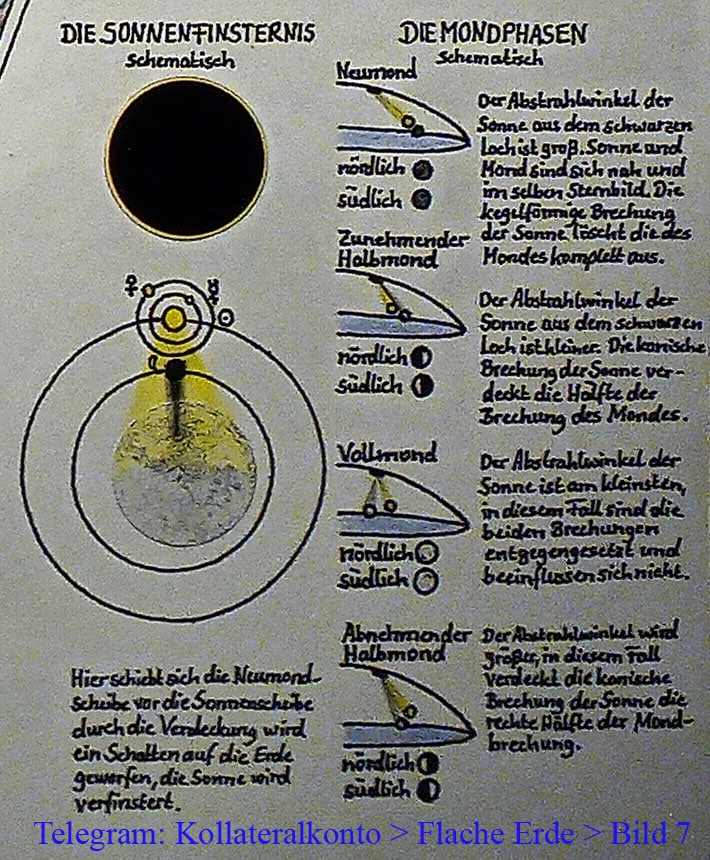 DIE SONNENFINSTERNIS
schematisch
Hier schiebt sich die Neumond-
scheibe vor die Sonnenscheibe
durch die Verdeckung wird
ein Schatten auf die Erde
geworfen, die Sonne wird
verfinstert.
DIE MONDPHASEN
schematisch
Neumond
nördlich
südlich
Der Abstrahlwinkel der
Sonne aus dem schwarzen
Loch ist groß. Sonne und
Mond sind sich nah und
im selben Sternbild. Die
kegelförmige Brechung
der Sonne löscht die des
Mondes komplett aus.
Zunehmender
Halbmond
nördlich
südlich
Der Abstrahlwinkel der
Sonne aus dem schwarzen
Loch ist kleiner. Die konische
Brechung der Sonne ver-
deckt die Hälfte der
Brechung des Mondes.
Vollmond
nördlich
südlich
Der Abstrahlwinkel der
Sonne ist am kleinsten,
in diesem Fall sind die
beiden Brechungen
entgegengesetzt und
beeinflussen sich nicht.
Abnehmender
Halbmond
nördlich
südlich
Der Abstrahlwinkel wird
größer, in diesem Fall
verdeckt die konische
Brechung der Sonne die
rechte Hälfte der Mond-
brechung.
Telegram: Kollateralkonto > Flache Erde > Bild 7